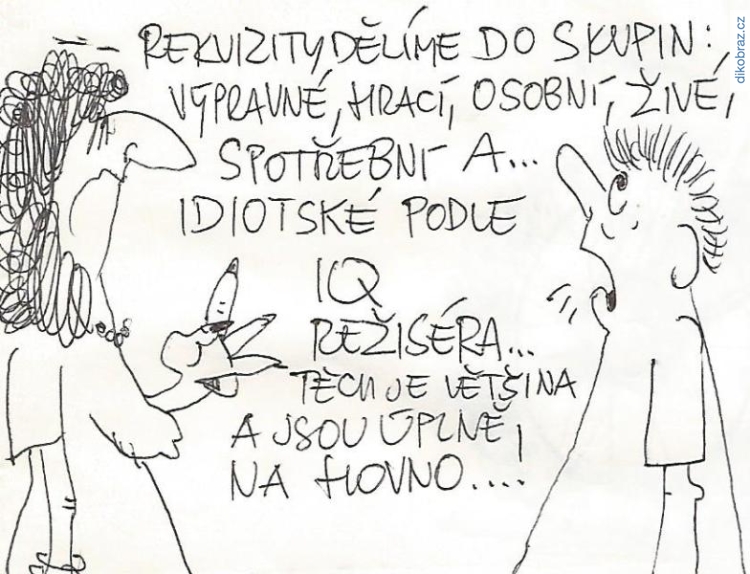 REKVIZITY DĚLÍME DO SKUPIN:
VÝPRAVNÉ, HRACÍ, OSOBNÍ, ŽIVÉ,
SPOTŘEBNÍ A...
IDIOTSKÉ PODLE
IQ
REŽISÉRA...
TĚCH JE VĚTŠINA
A JSOU ÚPLNĚ
NA HOVNO....
dikobraz.cz